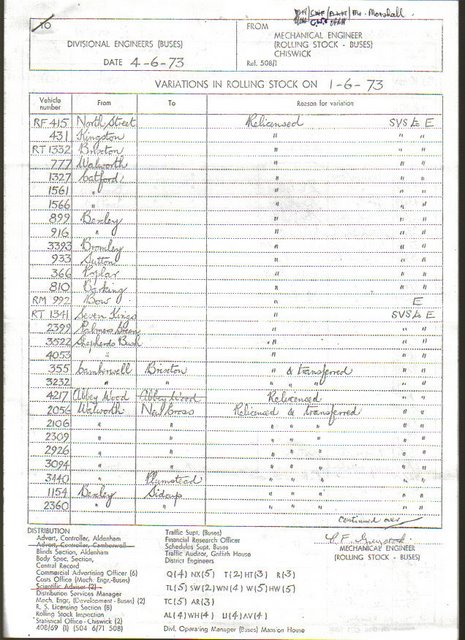 TO
DIVISIONAL ENGINEERS (BUSES)
DATE 4-6-73
Mr. Marshall.
FROM
MECHANICAL ENGINEER
(ROLLING STOCK - BUSES)
CHISWICK
Ref. 508/1
VARIATIONS IN ROLLING STOCK ON 1-6-73
Vehicle number From To Reason for variation
RF 415 North Street Relicensed SVS to E
431 Kingston " " "
RT 1332 Brixton " " "
777 Walworth " " "
1327 Catford " " "
1561 " " " "
1566 " " " "
899 Bexley " " "
916 " " " "
3393 Bromley " " "
933 Sutton " " "
366 Poplar " " "
810 Barking " " "
RM 992 Bow " E
RT 1341 Seven Kings " SVS to E
2399 Palmers Green " " "
3522 Shepherds Bush " " "
4053 " " " "
355 Camberwell Brixton " & transferred " "
3232 " " " " " " "
4217 Abbey Wood Abbey Wood Relicensed " "
2056 Walworth New Cross Relicensed & transferred " "
2106 " " " " " " "
2309 " " " " " " "
2926 " " " " " " "
3094 " " " " " " "
3440 " Plumstead " " " " "
1154 Bexley Sidcup " " " " "
2360 " " " " " " "
Continued over
MECHANICAL ENGINEER
(ROLLING STOCK - BUSES)
DISTRIBUTION
Advert. Controller, Aldenham
Advert. Controller, Camberwell
Blinds Section, Aldenham
Body Spec. Section,
Central Record
Commercial Advertising Officer (6)
Costs Office (Mech. Engr.-Buses)
Scientific Adviser (2)
Distribution Services Manager
Mech. Engr. (Development - Buses) (2)
R. S. Licensing Section (8)
Rolling Stock Inspection
Statistical Office - Chiswick (2)
408/69 (1) (504 6/71 508)
Traffic Supt. (Buses)
Financial Research Officer
Schedules Supt. Buses
Traffic Auditor, Griffith House
District Engineers
Q(4) NX(5) T(2) HT(3) R(3)
TL(5) SW(2) WN(4) W(5) HW(5)
TC(5) AR(3)
AL(4) WH(4) U(4) AV(4)
Divl. Operating Manager (Buses) Mansion House